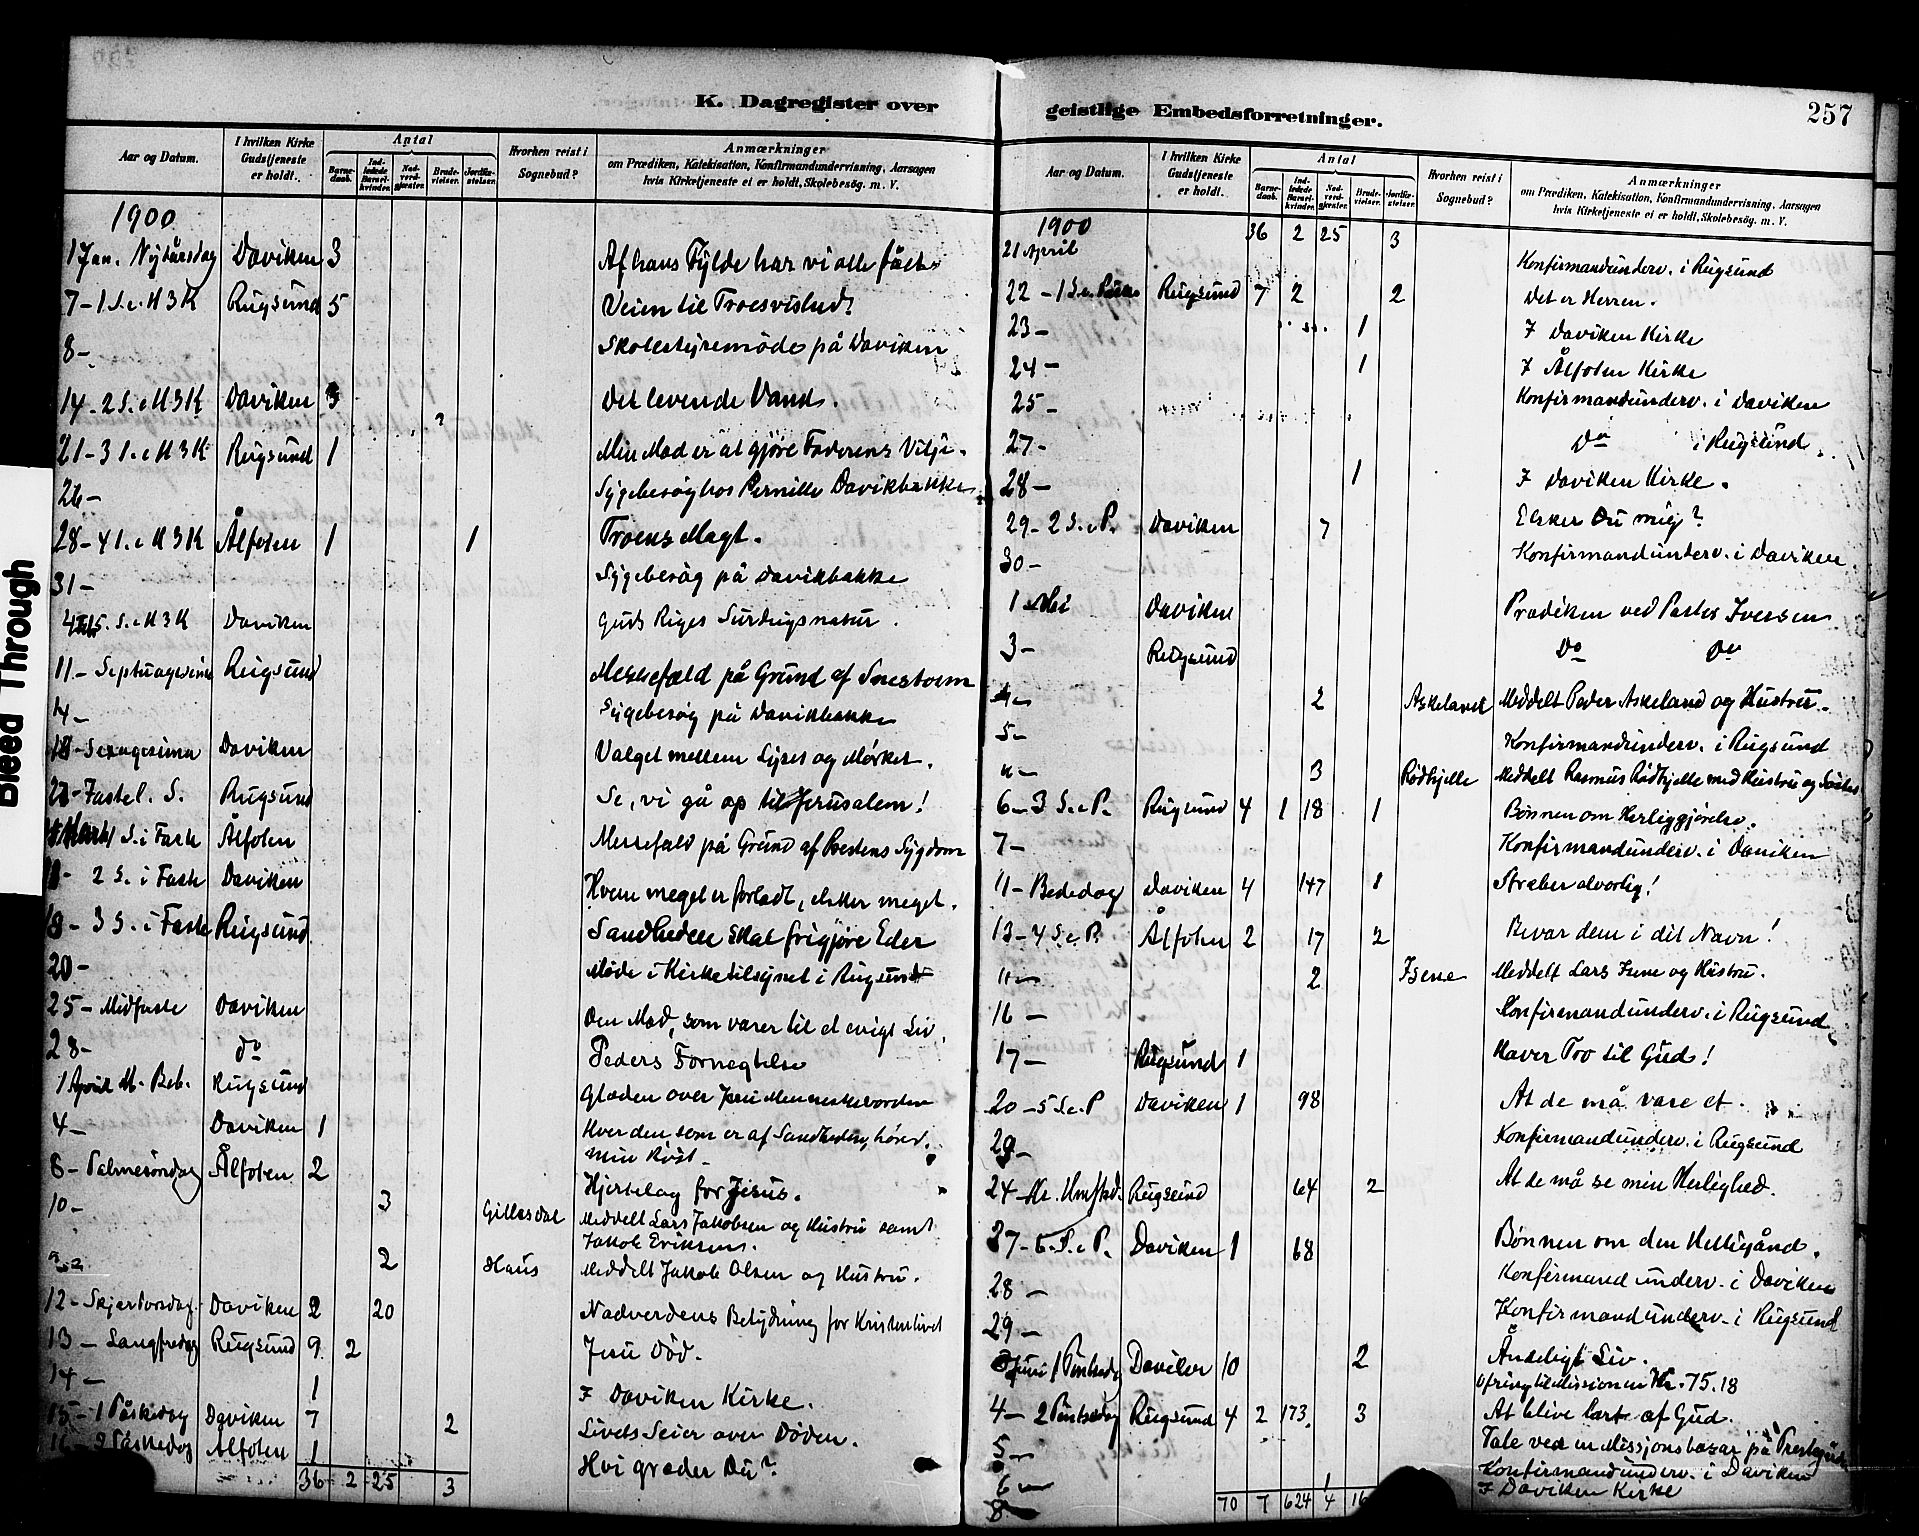 K. Dagregister over
Aar og Datum. I hvilken Kirke Gudstjeneste er holdt. Antal Barnedaab. Indledede Barselkvinder. Nadverdgjæster. Brudevielser. Jordfæstelser. Hvorhen reist i Sognebud? Anmærkninger om Prædiken, Katekisation, Konfirmandundervisning, Aarsagen hvis Kirketjeneste ei er holdt, Skolebesøg. m. V.
1900
1 Jan. Nytårsdag Daviken 3 Af hans Fylde har vi alle fået
7 - 1 S. e. H 3 K Rugsund 5 Veien til Troesvished
8 - Skolestyremøde på Daviken
14 - 2 S. e. H 3 K Daviken 3 Det levende Vand.
21 - 3 S. e. H 3 K Rugsund 1 Min Mad er at gjøre Faderens Vilje.
26 - Sygebesøg hos Pernille Davikbakke
28 - 4 S. e. H 3 K Ålfoten 1 1 Troens Magt.
31 - Sygebesøg på Davikbakke
4 Feb 5. S. e. H 3 K Daviken Guds Riges Surdeigsnatur.
11 - Septuagesima Rugsund Messefald på Grund af Snestorm
14 - Sygebesøg på Davikbakke
18 - Sexagesima Daviken Valget mellem Lyset og Mørket.
Fastel. S. Rugsund Se, vi gå op til Jerusalem!
Marts S. i Faste Ålfoten Messefald på Grund af Prestens Sygdom
2 S. i Faste Daviken Hvem meget er forladt, elsker meget.
18 - 3 S. i Faste Rugsund Sandheden skal frigjøre Eder
20 - Møde i Kirketilsynet i Rugsund
25 - Midfaste Daviken Den Mad, som varer til et evigt Liv.
28 - do Peders Fornegtelse
1 April M. Beb. Rugsund Glæden over Jesu Menneskevorden
4 - Daviken 1 Hver den, som er af Sandheden, hører
min Røst.
8 - Palmesøndag Ålfoten 2 Hjertelag for Jesus.
10 - 3 Gillesdal Meddelt Lars Jakobsen og Hustru samt
Jakob Eriksen.
2 Haus Meddelt Jakob Olsen og Hustru.
12 - Skjærtorsdag Daviken 2 20 Nadverdens Betydning for Kristenlivet
13 - Langfredag Rugsund 9 2 Jesu Død.
14 - 1 I Daviken Kirke.
15 - 1 Påskedag Daviken 7 2 Livets Seier over Døden.
16 - 2 Påskedag Ålfoten 1 Hvi græder Du?
36 - 2 - 25 3
geistlige Embedsforretninger.
257
Aar og Datum. I hvilken Kirke Gudstjeneste er holdt. Antal Barnedaab. Indledede Barselkvinder. Nadverdgjæster. Brudevielser. Jordfæstelser. Hvorhen reist i Sognebud? Anmærkninger om Prædiken, Katekisation, Konfirmandundervisning, Aarsagen hvis Kirketjeneste ei er holdt, Skolebesøg. m. V.
1900 36 2 25 3
21 April Konfirmandunderv. i Rugsund
22 - 1 S. e. Påske Rugsund 7 2 2 Det er Herren.
23 - 1 I Daviken Kirke
24 - 1 I Ålfoten Kirke
25 - Konfirmandunderv. i Daviken
27 - Do i Rugsund.
28 - 1 I Daviken Kirke.
29 - 2 S. e. P. Daviken 7 Elsker Du mig?
30 - Konfirmandunderv. i Daviken
1 Mai Daviken Prædiken ved Pastor Iversen
3 - Rugsund Do Do
4 - 2 Askeland Meddelt Peder Askeland og Hustru.
5 - Konfirmandunderv. i Rugsund
" - 3 Rødhjelle Meddelt Rasmus Rødhjelle med Hustru og Søster
6 - 3 S. e. P. Rugsund 4 1 18 1 Bønnen om Herliggjørelse.
7 - Konfirmandunderv. i Daviken
11 - Bededag Daviken 4 147 1 Stræber alvorlig!
13 - 4 S. e. P. Ålfoten 2 17 2 Bevar dem i dit Navn!
" - 2 Isene Meddelt Lars Isene og Hustru.
16 - Konfirmandunderv. i Rugsund
17 - Rugsund 1 Haver Tro til Gud!
20 - 5 S. e. P Daviken 1 98 At de må være et.
Konfirmandunderv. i Rugsund
24 - Kr. Himfkd. Rugsund 64 2 At de må se min Herlighed.
27 - 6. S. e. P. Daviken 1 68 Bønnen om den Helligånd.
28 - Konfirmandunderv. i Daviken
29 - Konfirmandunderv. i Rugsund
3 Juni 1 Pintsedag Daviken 10 2 Åndeligt Liv.
Ofring til Missionen Kr. 75.18
4 - 2 Pintsedag Rugsund 4 2 173 3 At blive lært af Gud.
5 - Tale ved en Missjonsbazar på
6 - Konfirmandunderv. i Daviken
8 - I Daviken Kirke
70 7 624 4 16